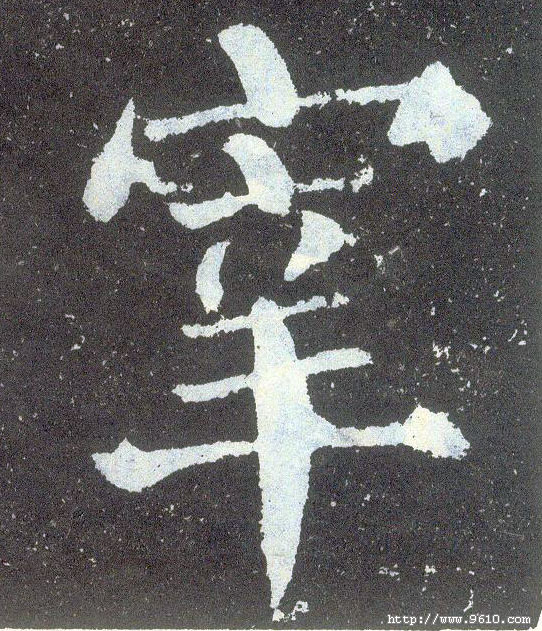 宰
http://www.9610.com